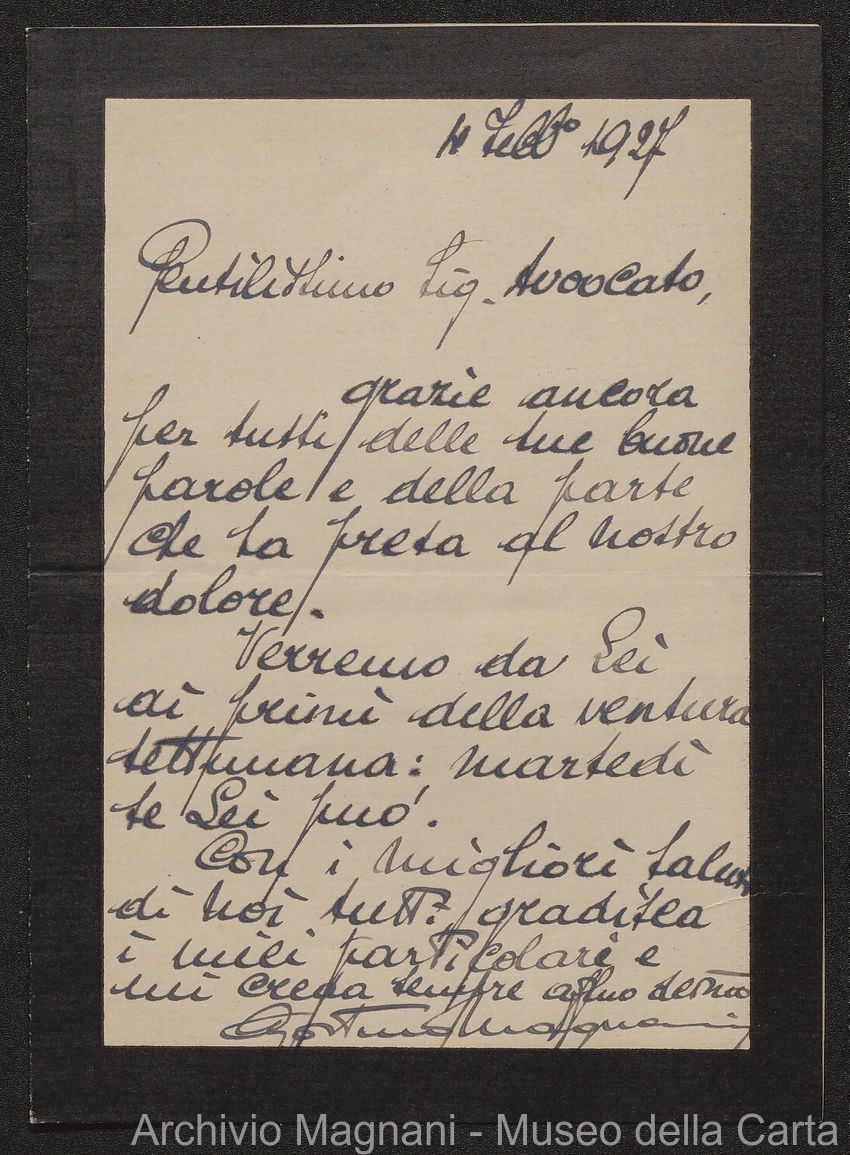 4 Febbº 1927
Gentilissimo Sig. Avvocato,
grazie ancora
per tutti delle sue buone
parole e della parte
che ha presa al nostro
dolore.
Verremo da Lei
ai primi della ventura
settimana: martedì
se Lei può.
Con i migliori saluti
di noi tutti gradisca
i miei particolari e
mi creda sempre affmo
Agostino Magnani
Archivio Magnani - Museo della Carta